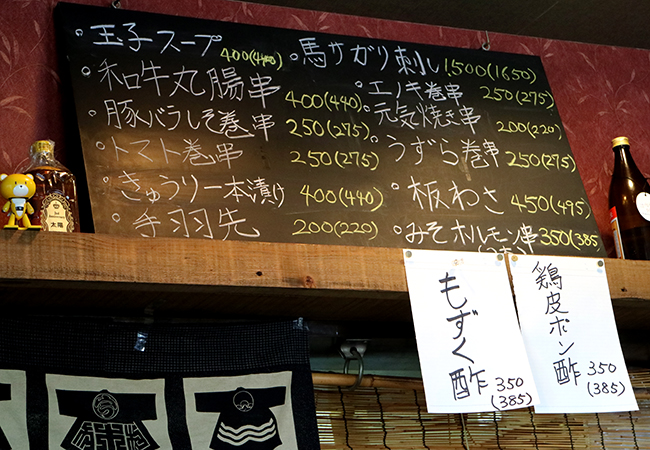 ・玉子スープ 400(440)
・和牛丸腸串 400(440)
・豚バラしそ巻串 250(275)
・トマト巻串 250(275)
・きゅうり一本漬け 400(440)
・手羽先 200(220)
・馬サガリ刺し 1,500(1650)
・エノキ巻串 250(275)
・元気焼き串 200(220)
・うずら巻串 250(275)
・板わさ 450(495)
・みそホルモン串 350(385)
もずく酢 350
(385)
鶏皮ポン酢 350
(385)